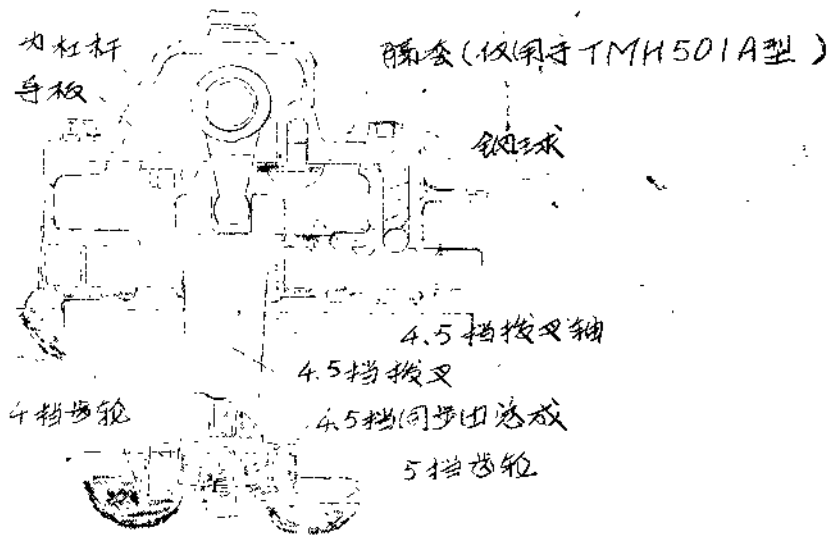 内杠杆
导板
胀套(仅用于TMH501A型)
钢球
4.5挡拨叉轴
4.5挡拨叉
4挡齿轮
4.5挡同步器总成
5挡齿轮